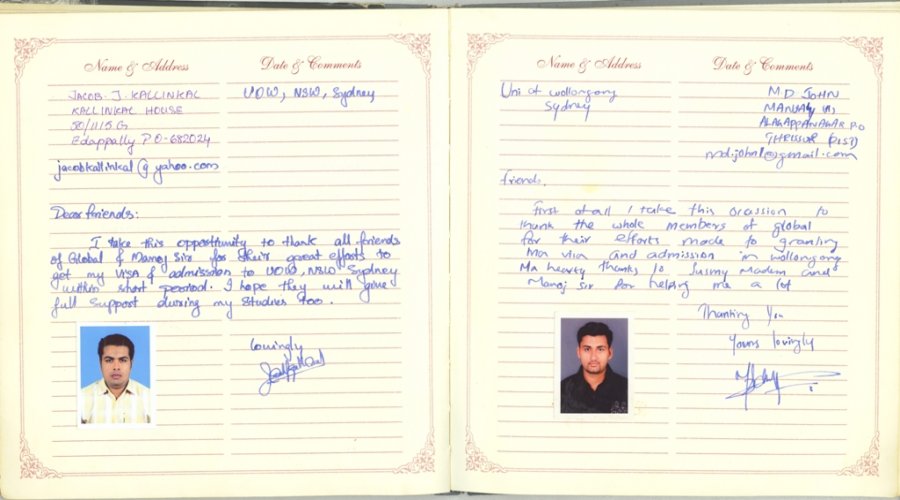 Name & Address
Date & Comments
JACOB. J. KALLINKAL
KALLINKAL HOUSE
50/115 G
Edappally P.O-682024
jacobkallinkal@yahoo.com
UOW, NSW, Sydney
Dear friends:
I take this opportunity to thank all friends
of Global & Manoj Sir for their great efforts to
get my VISA & admission to UOW, NSW, Sydney
within short period. I hope they will give
full support during my Studies too.
lovingly
Name & Address
Date & Comments
Uni of wollongong
Sydney
MD JOHN
ALAGAPPANAGAR P.O
THRISSUR (DIST)
md.john1@gmail.com
friends,
First of all I take this ocassion to
thank the whole members of global
for their efforts made to granting
Ma visa and admission in wollongong
Ma hearty thanks to Jusmy Madam and
Manoj sir for helping me a lot
Thanking You
Yours lovingly